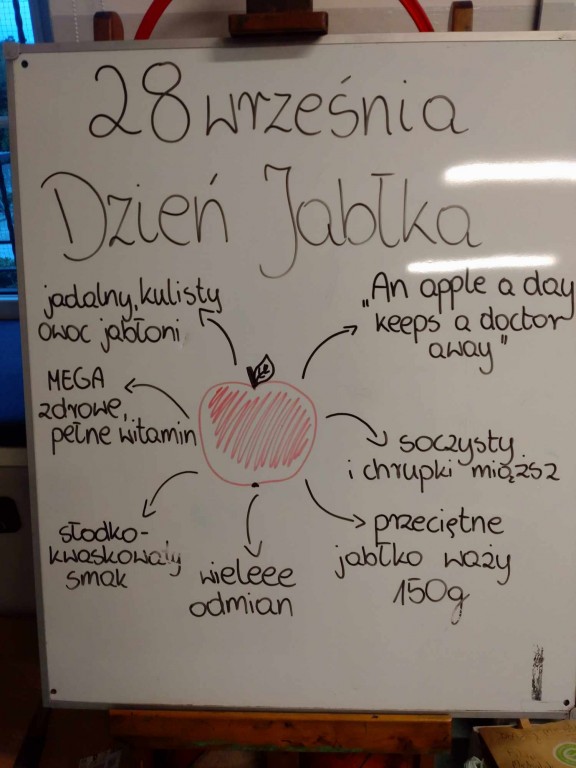 28 września
Dzień Jabłka
jadalny, kulisty
owoc jabłoni
„An apple a day
keeps a doctor
away"
MEGA
zdrowe,
pełne witamin
soczysty
i chrupki miąższ
słodko-
kwaskowaty
smak
wieleee
odmian
przeciętne
jabłko waży
150g